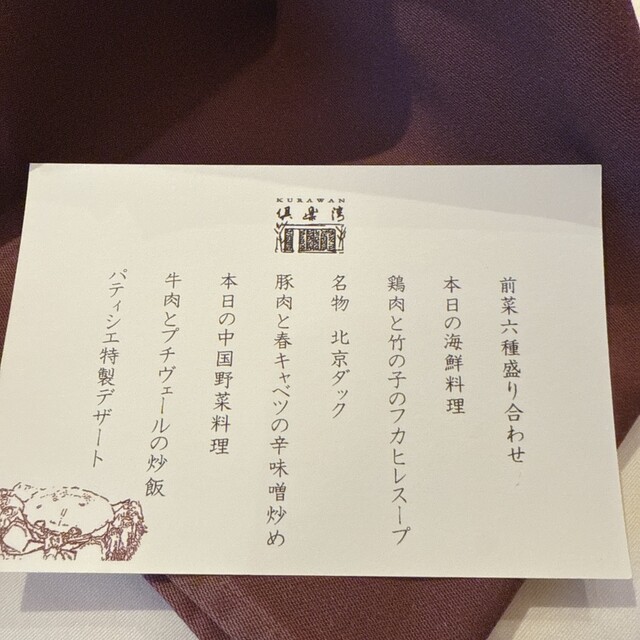 KURAWAN
倶楽湾
前菜六種盛り合わせ
本日の海鮮料理
鶏肉と竹の子のフカヒレスープ
名物 北京ダック
豚肉と春キャベツの辛味噌炒め
本日の中国野菜料理
牛肉とプチヴェールの炒飯
パティシエ特製デザート